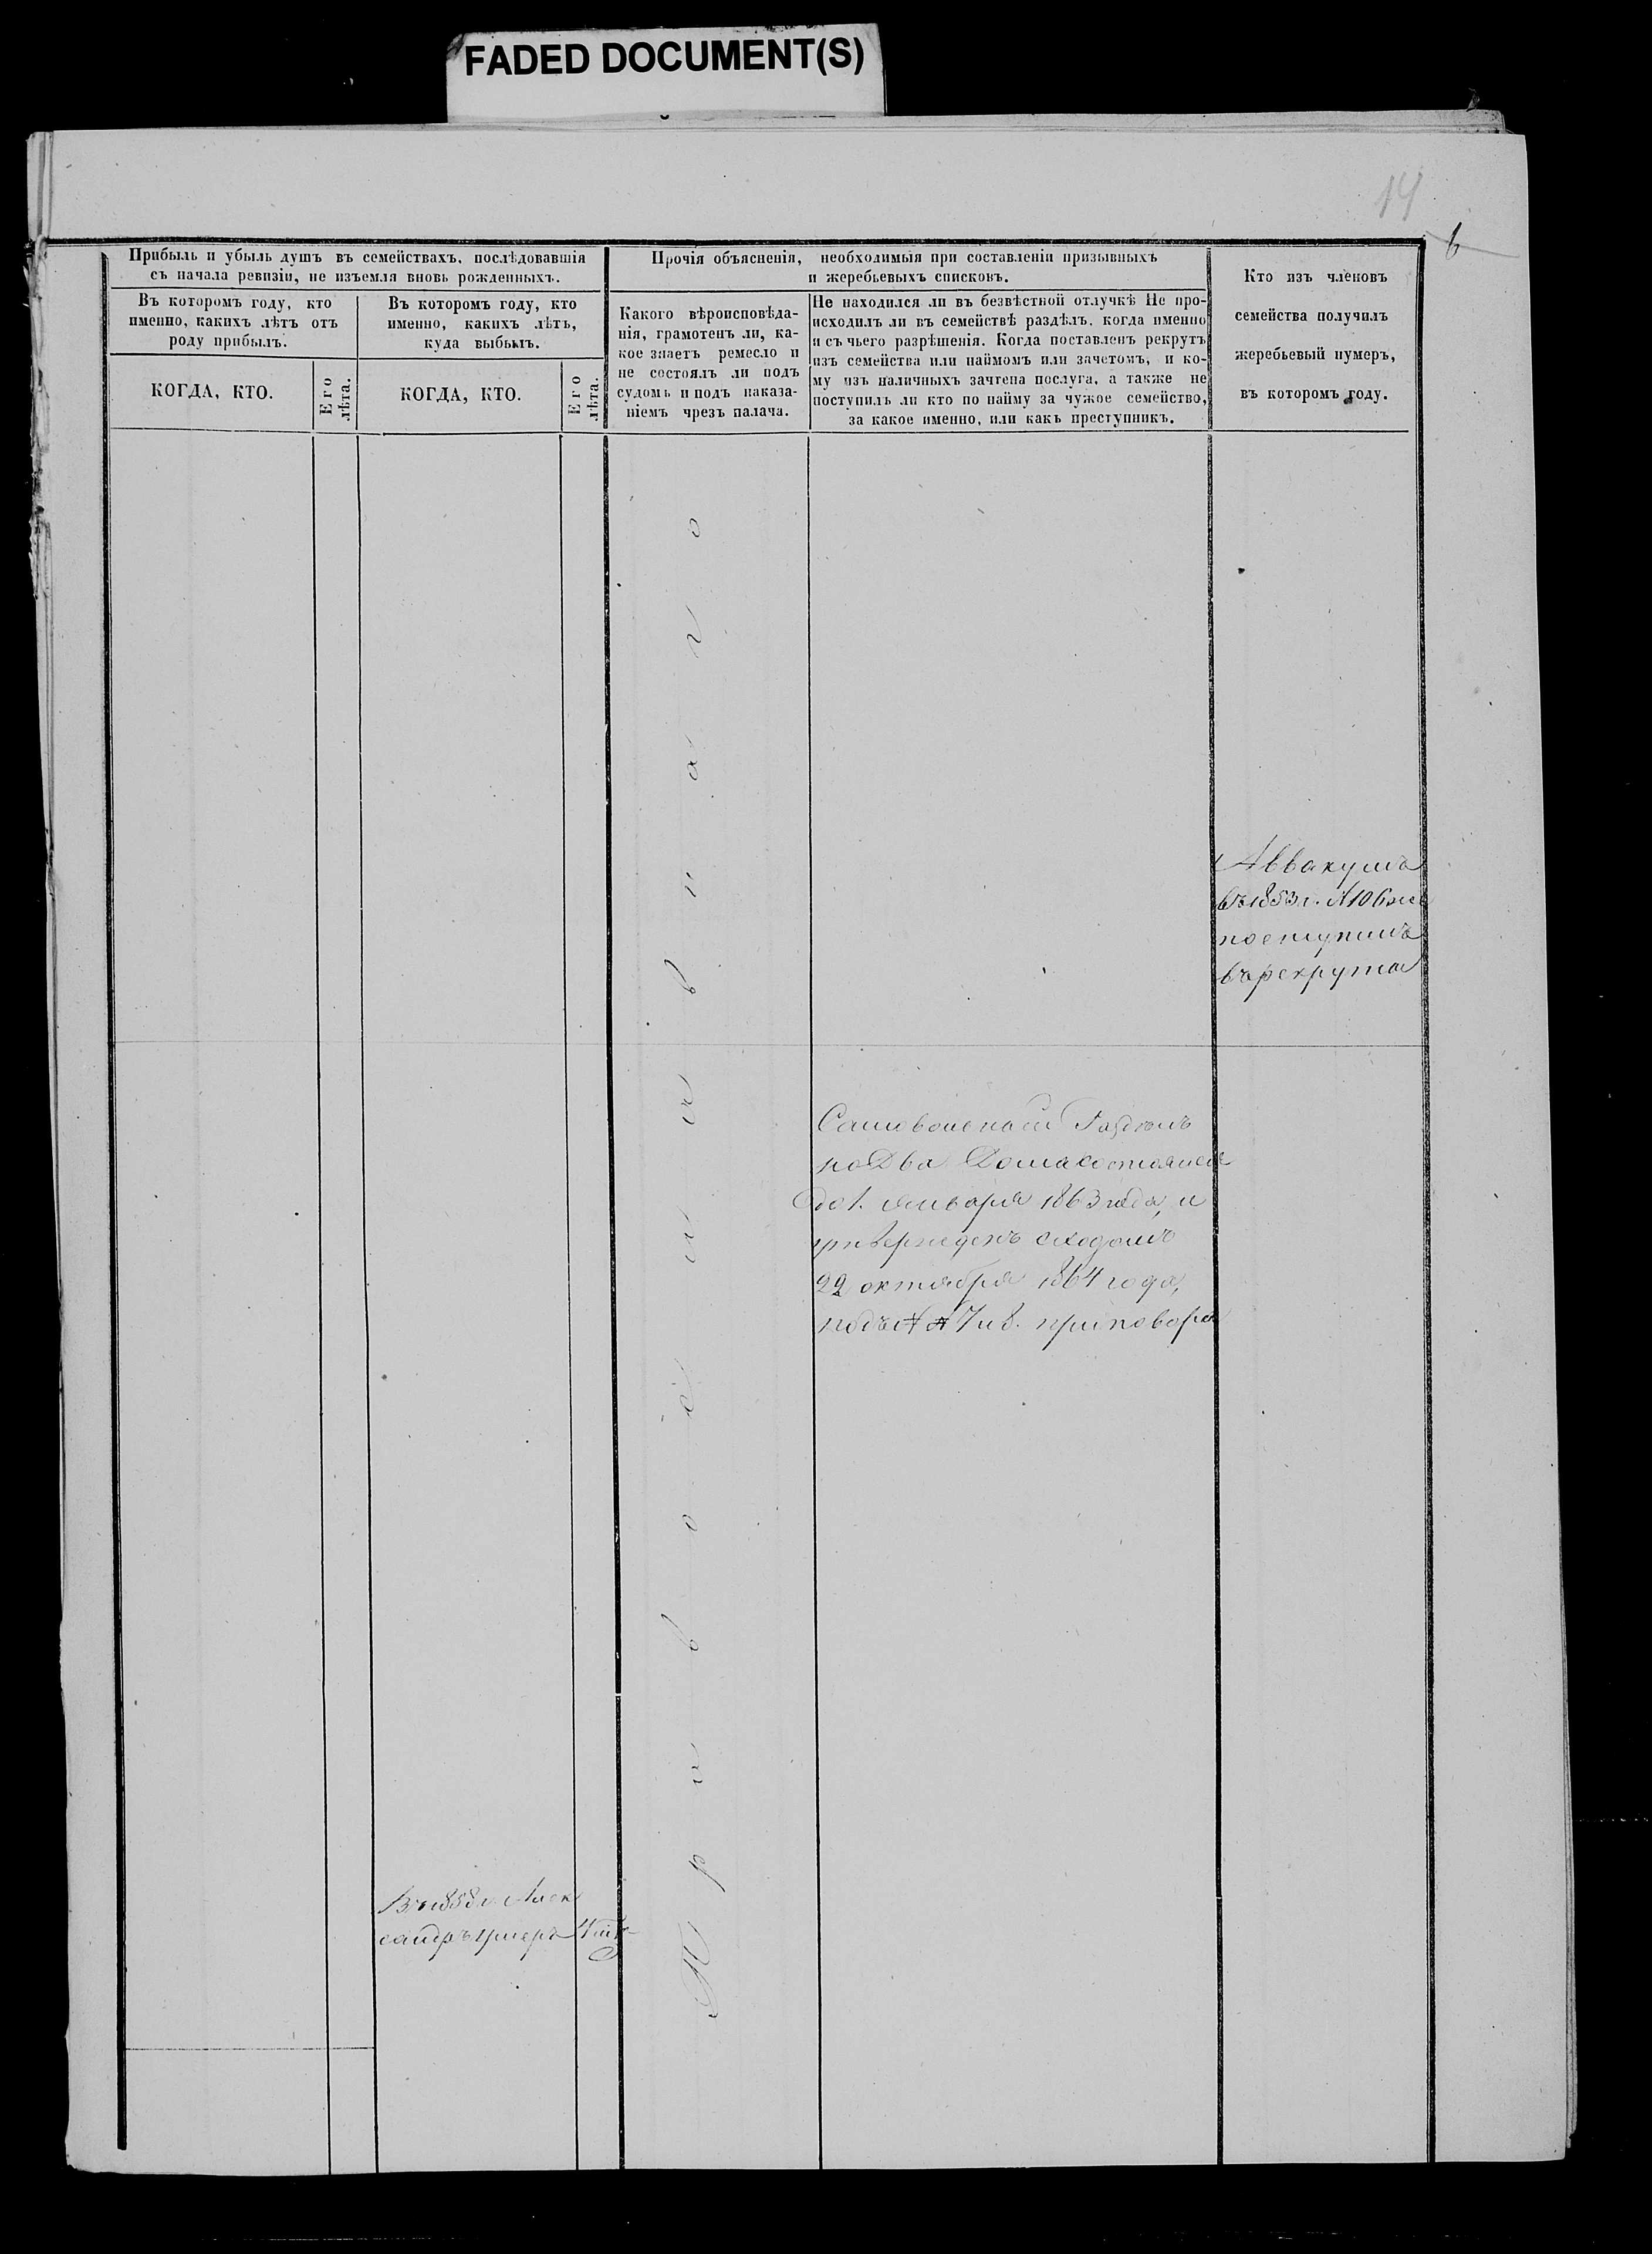 FADED DOCUMENT(S)
14
6
Прибыль и убыль душъ въ семействахъ, послѣдовавшія
съ начала ревизіи, не изъемля вновь рожденныхъ.
Въ которомъ году, кто
именно, какихъ лѣтъ отъ
роду прибылъ.
КОГДА, КТО.
Его
лѣта.
Въ которомъ году, кто
именно, какихъ лѣтъ,
куда выбылъ.
КОГДА, КТО.
Его
лѣта.
Прочія объясненія, необходимыя при составленіи призывныхъ
и жеребьевыхъ списковъ.
Какого вѣроисповѣда-
нія, грамотенъ ли, ка-
кое знаетъ ремесло и
не состоялъ ли подъ
судомъ и подъ наказа-
ніемъ чрезъ палача.
Не находился ли въ безвѣстной отлучкѣ Не про-
исходилъ ли въ семействѣ раздѣлъ, когда именно
и съ чьего разрѣшенія. Когда поставленъ рекрутъ
изъ семейства или наймомъ или зачетомъ, и ко-
му изъ наличныхъ зачтена послуга, а также не
поступилъ ли кто по найму за чужое семейство,
за какое именно, или какъ преступникъ.
Кто изъ членовъ
семейства получилъ
жеребьевый нумеръ,
въ которомъ году.
Аввакумъ
въ 1853 г. №106 не
поступилъ
въ рекрута
Самовольной Раздѣлъ
на Два Дома состоялся
до 1. Января 1863 года, и
утвержденъ сходомъ
22 октября 1864 года,
подъ №№ 7 и 8. приговора
Въ 1858 г. Алек
сандръ умеръ
4
Православнаго